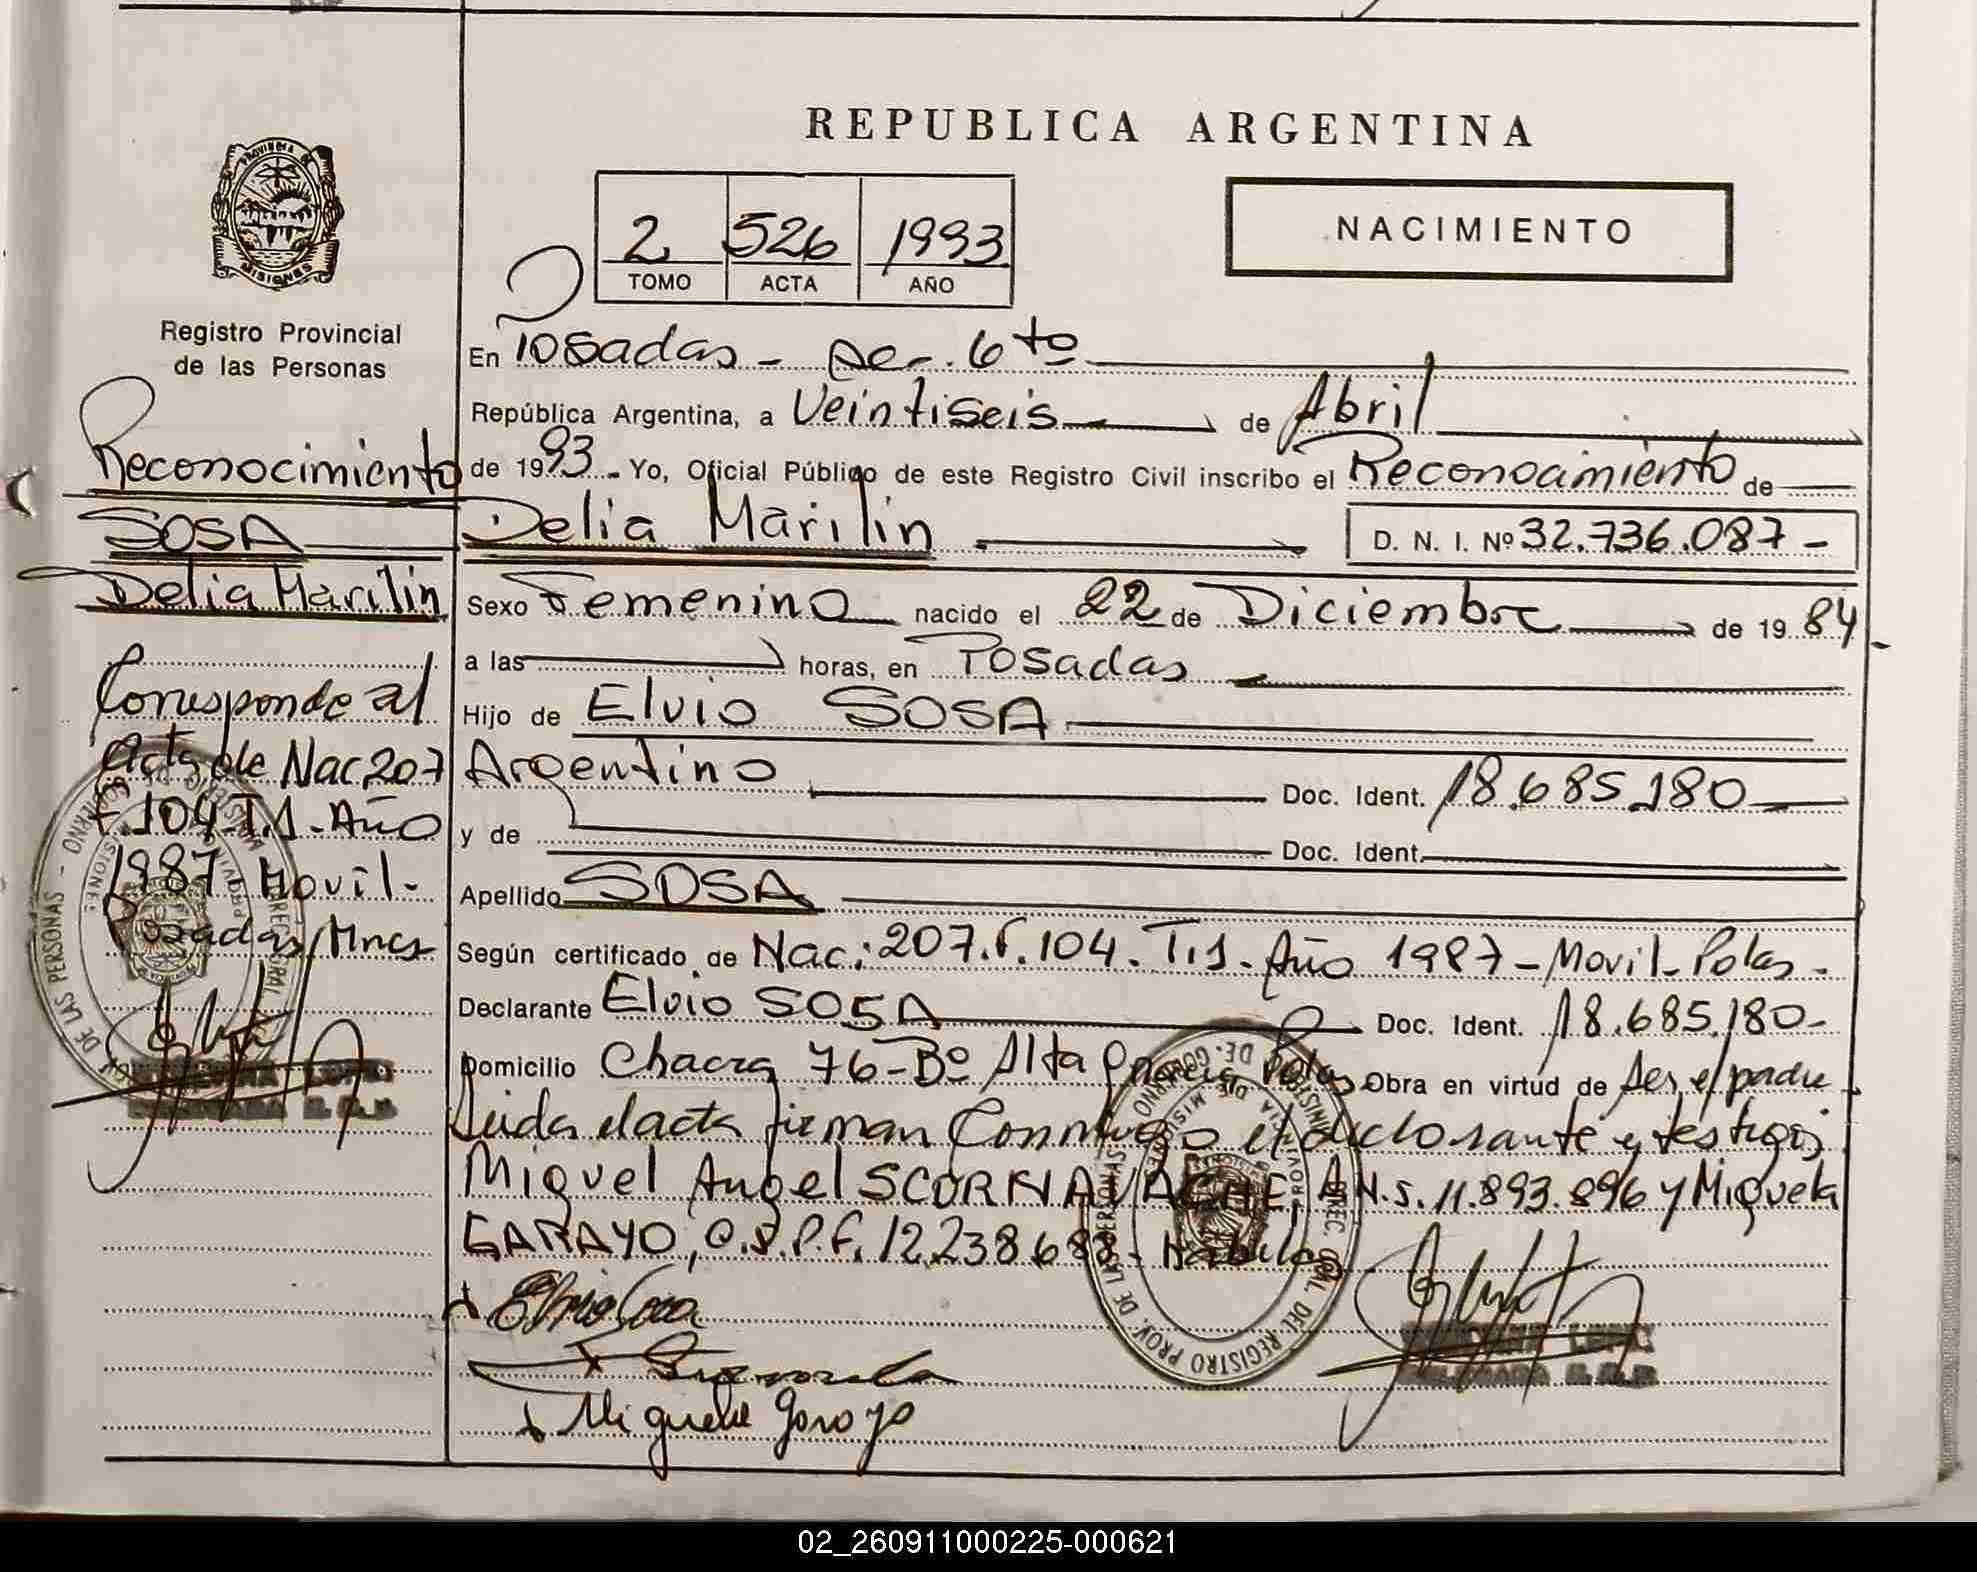 REPUBLICA ARGENTINA
PROVINCIA DE
MISIONES
Registro Provincial
de las Personas
2 526 1993
TOMO ACTA AÑO
NACIMIENTO
En Posadas - Sec. 6to
República Argentina, a Veintiseis de Abril
de 1993 - Yo, Oficial Público de este Registro Civil inscribo el Reconocimiento de
Delia Marilin D. N. I. Nº 32.736.087 -
Sexo Femenino nacido el 22 de Diciembre de 1984 -
a las horas, en Posadas
Hijo de Elvio SOSA
Argentino Doc. Ident. 18.685.180
y de Doc. Ident.
Apellido SOSA
Según certificado de Nac: 207. F. 104. T.1 - Año 1987 - Movil - Pdas.
Declarante Elvio SOSA Doc. Ident. 18.685.180 -
Domicilio Chacra 76 - Bº Alta Pdas. Obra en virtud de ser el padre
Leida el acta firman Conmigo el declarante y testigos
Miguel Angel SCORNAVACHE, 11.893.896 y Miguela
GARAYO, C.I.P.F. 12.238.688 - Habiles
Elvio Sosa
Miguela Garayo
Reconocimiento
SOSA
Delia Marilin
Corresponde al
Acta de Nac 207
F. 104 - T.1 - Año
1987 Movil -
Posadas, Mnes
02_260911000225-000621